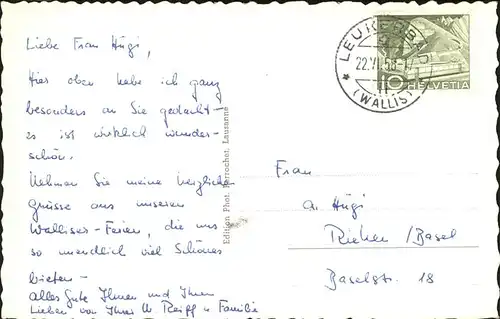 Liebe Frau Hügi,
Hier oben habe ich ganz
besonders an Sie gedacht –
es ist wirklich wunder-
schön.
Nehmen Sie meine herzliche
Grüsse aus unseren
Walliser-Ferien, die uns
so unendlich viel Schönes
bieten –
Alles Gute Ihnen und Ihren
Lieben von Ihrer Reiff u Familie
Edition Phot. Perrochet, Lausanne
LEUKERBAD
22.VII.58-17
(WALLIS)
10 HELVETIA
Frau
A. Hügi
Riehen / Basel
Baselstr. 18